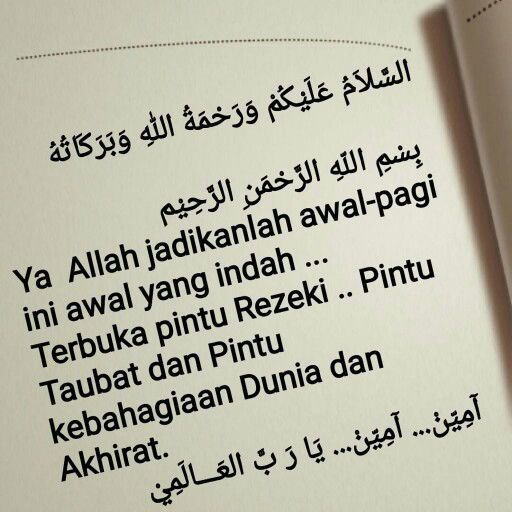 السَّلاَمُ عَلَيْكُمْ وَرَحْمَةُ اللهِ وَبَرَكَاتُهُ
بِسْمِ اللّهِ الرَّحْمَنِ الرَّحِيْم
Ya Allah jadikanlah awal-pagi
ini awal yang indah ...
Terbuka pintu Rezeki .. Pintu
Taubat dan Pintu
kebahagiaan Dunia dan
Akhirat.
آمِيّنْ... آمِيّنْ... يَا رَ بَّ العَـــالَمِيْ